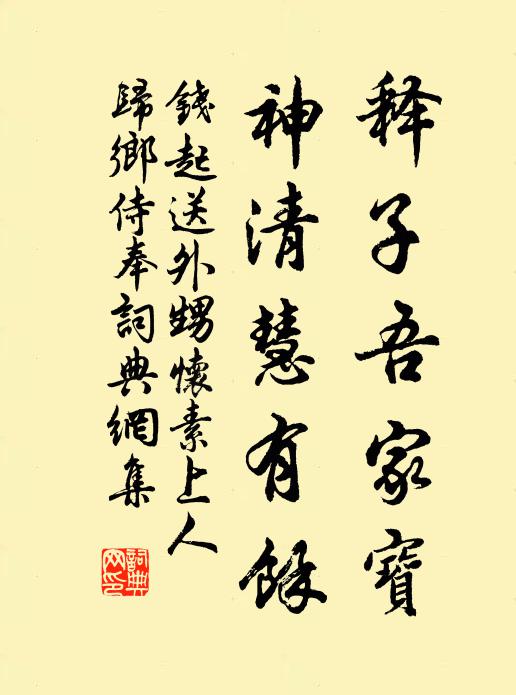 释子吾家寶
神清慧有餘
錢起送外甥懷素上人
歸鄉侍奉詞典網集
詞典网印